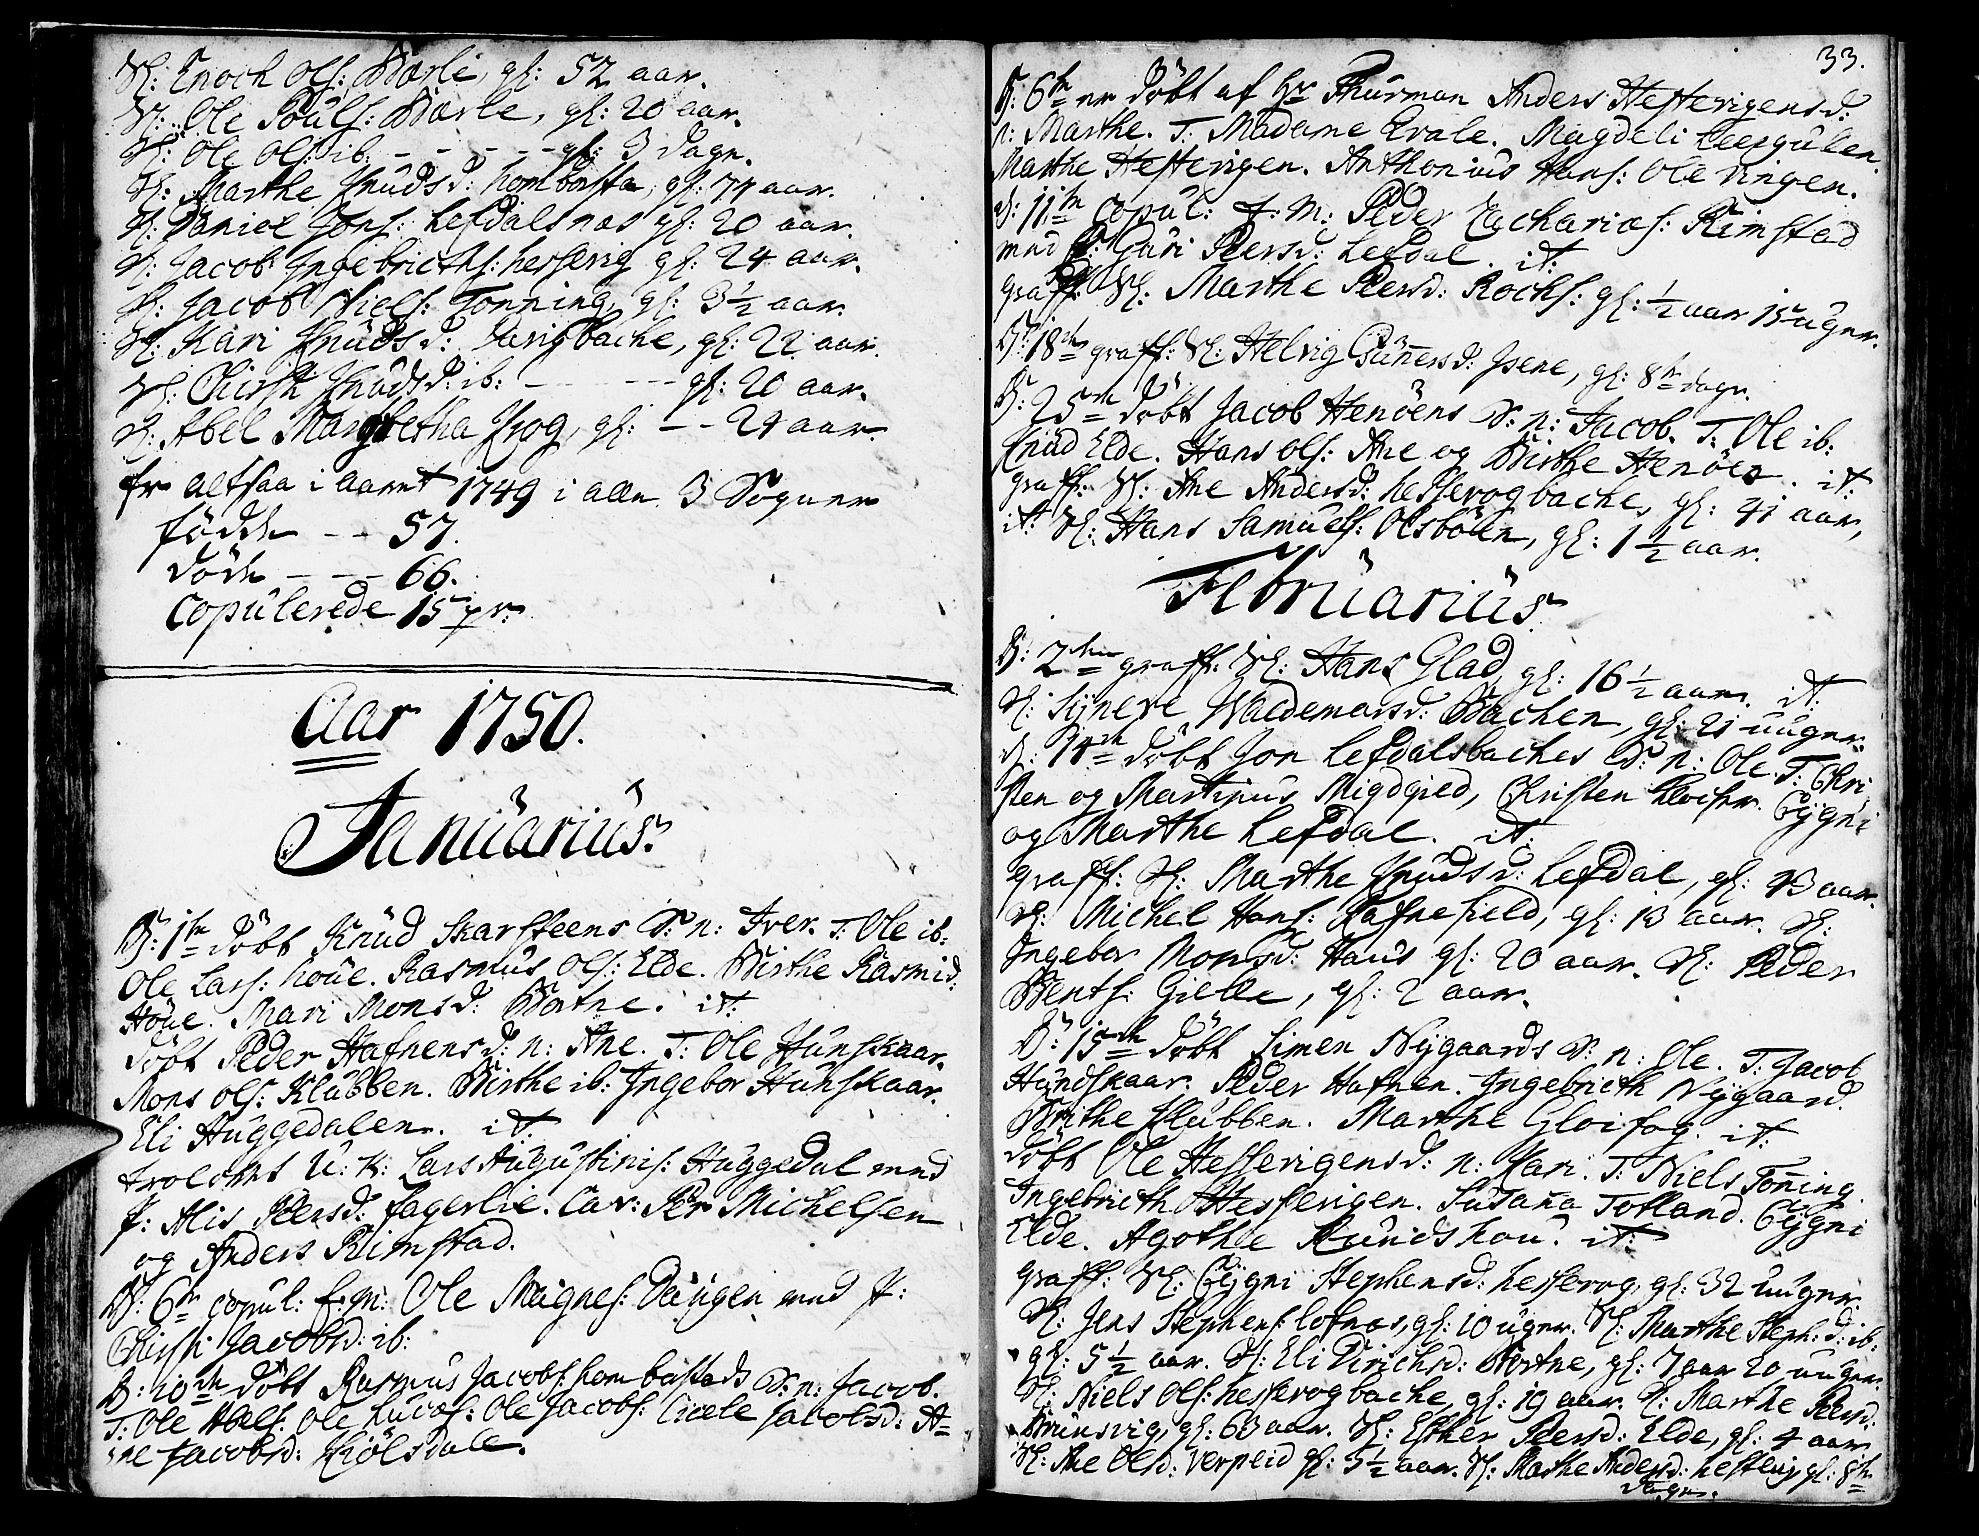 Sl: Enoch Ols: Barlie, gl: 52 aar.
Sl: Ole Pouls: Barlie, gl: 20 aar.
Sl: Ole Ols: ib: - - - - - gl: 3 dage.
Sl: Marthe Knudsd: hombasta, gl: 74 aar.
Sl: Daniel Jons: Lefdalsnæs gl: 20 aar.
Sl: Jacob Ingebricths: hesserig gl: 24 aar.
Sl: Jacob Niels: Tonning, gl: 3 1/2 aar.
Sl: Kari Knudsd: Davigbache, gl: 22 aar.
Sl: Chirsti Knudsd: ib: - - - - - gl: 20 aar.
Sl: Abel Margretha Krog, gl: - - 24 aar.
Er altsaa i aaret 1749 i alle 3 Sogner
födde - - 57.
döde - - - 66.
Copulerede 15 pr:
Aar 1750.
Januarius.
D: 1te döbt Knud Skarsteens S: n: Iver. T: Ole ib:
Ole Lars: houe. Rasmus Ols: Elde. Birthe Rasmid:
Höue. Mari Monsd: Botne. it:
döbt Peder Hafnensd: n: Ane. T: Ole Hunskaar.
Mons Ols: Klubben. Birthe ib: Ingebor Hunskaar.
Eli Huggedalen. it:
trolovet U: K: Lars Augustinis: Huggedal med
P: Alis Peersd: fagerlie. Cav: Per Michelsen
og Anders Rimstad.
D: 6te copul: E: m: Ole Magnes: Davigen med P:
Chirsti Jacobsd: ib:
D: 10de döbt Rasmus Jacobs: hombastads S: n: Jacob.
T: Ole Ols: Ole Lucas: Ole Jacobs: Cicele Jacobsd: A=
ne Jacobsd: Kiölsdale.
33.
D: 6te er döbt af Hr Thurman Anders Hesterigensd:
n: Marthe. T: Madame Qvale. Magdeli Leesgulen
Marthe Hesterigen. Anthonius Hans: Ole ringen.
D: 11te copul: E: m: Peder Zacharias: Rimstad
med P: Guri Peersd: Lefdal. it:
graff: Sl: Marthe Peersd: Rochs: gl: 1/2 aar 15 uger.
D: 18de graff: Sl: Helvig Gunnersd: Isene, gl: 8te dage.
D: 25de döbt Jacob Henöens S: n: Jacob. T: Ole ib:
Knud Elde. Hans Ols: Ane og Birthe Henöen. it:
graff: Sl: Ane Andersd: hesserogbache, gl: 41 aar,
it: Sl: Hans Samuels: Olsbölen, gl: 1 1/2 aar.
Februarius.
D: 2den graff: Sl: Hans Glad, gl: 16 1/2 aar. it:
Sl: Signeve Waldemarsd: Bachen, gl: 21 uuger.
D: 14de döbt Jon Lefdalsbaches S: n: Ole. T: Chri
sten og Martinus Migdgied, Christen Klocher. Gygni
og Marthe Lefdal. it:
graff: Sl: Marthe Knudsd: Lefdal, gl: 23 aar.
Sl: Michel Hans: Rafnefield, gl: 13 aar. Sl:
Ingebor Monsd: Haus gl: 20 aar. Sl: Peder
Bents: Gielle, gl: 2 aar.
D: 15de döbt Simen Nygaards S: n: Ole. T: Jacob
Hundskaar. Peder Hafnen. Ingebricth Nygaard.
Birthe Klubben. Marthe Gloifog. it:
döbt Ole Hesserigensd: n: Kari. T: Niels Toning.
Ingebricth Hesserigen. Susana Totland. Gygni
Elde. Agothe Rundshou. it:
graff: Sl: Gygni Stephensd: hesserog, gl: 32 uuger.
Sl: Jens Stephens: lofnæs, gl: 10 uger. Sl: Marthe Steph:d: ib:
gl: 5 1/2 aar. Sl: Eli Dirichsd: Bortne, gl: 7 aar 20 uuger.
Sl: Niels Ols: hesserogbache, gl: 19 aar. Sl: Marthe Peersd:
Brunsvig, gl: 63 aar. Sl: Esther Peersd: Elde, gl: 4 aar
Sl: Ane Olsd: Verpeid gl: 5 1/2 aar. Sl: Marthe Andersd: hesterig gl: 8te
dage.